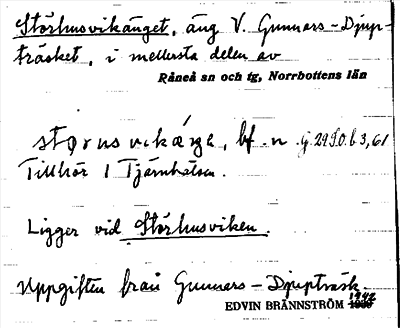 Störhusvikänget, äng V. Gunnars-Djup-
träsket, i mellersta delen av
Råneå sn och tg, Norrbottens län
bf. n
Tillhör 1
Ligger vid Störhusviken.
Uppgiften från Gunnars-Djupträsk.
EDVIN BRÄNNSTRÖM 1942